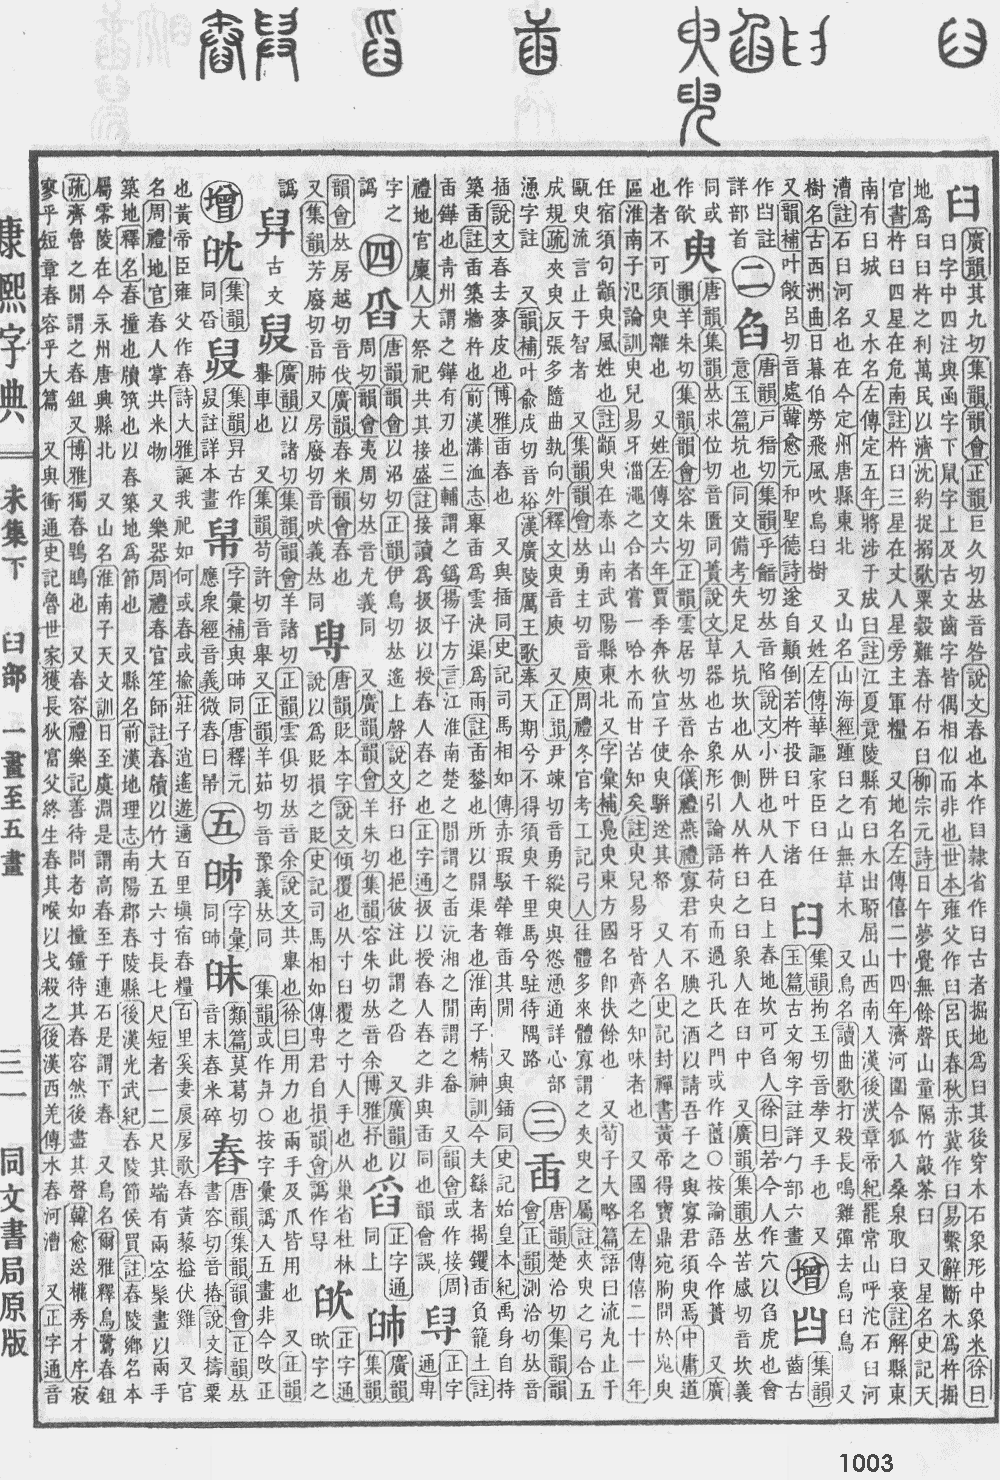 臼廣韻其九切集韻韻會正韻巨久切𠀤音咎說文舂也本作𦥑隸省作臼古者掘地爲臼其後穿木石象形中象米徐曰
臼字中四注與函字下鼠字上及古文齒字皆偶相似而非也世本雍父作臼呂氏春秋赤冀作臼易繫辭斷木爲杵掘
地爲臼臼杵之利萬民以濟沈約捉搦歌粟穀難舂付石臼柳宗元詩日午夢覺無餘聲山童隔竹敲茶臼 又星名史記天
官書杵臼四星在危南註杵臼三星在丈人星旁主軍糧 又地名左傳僖二十四年濟河圍令狐入桑泉取臼衰註解縣東
南有臼城 又水名左傳定五年將涉于成臼註江夏竟陵縣有臼水出聊屈山西南入漢後漢章帝紀罷常山呼沱石臼河
漕註石臼河名也在今定州唐縣東北 又山名山海經踵臼之山無草木 又鳥名讀曲歌打殺長鳴雞彈去烏臼鳥 又
樹名古西洲曲日暮伯勞飛風吹烏臼樹 又姓左傳華貙家臣臼任
又韻補叶敞呂切音處韓愈元和聖德詩遂自顛倒若杵投臼叶下渚
𦥑集韻拘玉切音挶叉手也 又
玉篇古文匊字註詳勹部六畫
增
集韻
齒古
作𠚒註
詳部首
二
臽唐韻戸猪切集韻乎韽切𠀤音陷說文小阱也从人在臼上舂地坎可臽人徐曰若今人作穴以臽虎也會
意玉篇坑也同文備考失足入坑坎也从側人从杵臼之臼象人在臼中 又廣韻集韻𠀤苦感切音坎義
同或
作欿
臾唐韻集韻𠀤求位切音匱同蕢說文草器也古象形引論語荷臾而過孔氏之門或作蕢○按論語今作蕢 又廣
韻羊朱切集韻韻會容朱切正韻雲居切𠀤音余儀禮燕禮寡君有不腆之酒以請吾子之與寡君須臾焉中庸道
也者不可須臾離也 又姓左傳文六年賈季奔狄宣子使臾騈送其帑 又人名史記封禪書黃帝得寶鼎宛朐問於鬼臾
區淮南子氾論訓臾兒易牙淄澠之合者嘗一哈水而甘苦知矣註臾兒易牙皆齊之知味者也 又國名左傳僖二十一年
任宿須句顓臾風姓也註顓臾在泰山南武陽縣東北 又字彙補鳧臾東方國名卽扶餘也 又荀子大略篇語曰流丸止于
甌臾流言止于智者 又集韻韻會𠀤勇主切音庾周禮冬官考工記弓人往體多來體寡謂之夾臾之屬註夾臾之弓合五
成規疏夾臾反張多隨曲執向外釋文臾音庾 又正韻尹竦切音勇縱臾與慫慂通詳心部
慂字註 又韻補叶俞戍切音裕漢廣陵厲王歌奉天期兮不得須臾千里馬兮駐待隅路
三
臿唐韻楚洽切集韻韻
會正韻測洽切𠀤音
插說文舂去麥皮也博雅臿舂也 又與插同史記司馬相如傳赤瑕駁犖雜臿其閒 又與鍤同史記始皇本紀禹身自持
築臿註臿築牆杵也前漢溝洫志舉臿爲雲決渠爲雨註臿鍫也所以開渠者也淮南子精神訓今夫繇者揭钁臿負籠土註
臿鏵也靑州謂之鏵有刃也三輔謂之鎢揚子方言江淮南楚之閒謂之臿沅湘之閒謂之畚 又韻會或作捷周
禮地官廩人大祭祀共其接盛註接讀爲扱扱以授舂人舂之也正字通扱以授舂人舂之非與臿同也韻會誤
正字
通𦥔
字之
譌
四
舀唐韻韻會以沼切正韻伊鳥切𠀤遙上聲說文抒臼也挹彼注此謂之舀 又廣韻以
周切韻會夷周切𠀤音尤義同 又廣韻韻會羊朱切集韻容朱切𠀤音余博雅抒也
正字通
同上
廣韻
集韻
韻會𠀤房越切音伐廣韻舂米韻會舂也
又集韻芳廢切音肺又房廢切音吠義𠀤同
唐韻貶本字說文傾覆也从寸臼覆之寸人手也从巢省杜林
說以爲貶損之貶史記司馬相如傳𦥔君自損韻會譌作𦥑
正字通
欪字之
譌
舁古文
廣韻以諸切集韻韻會羊諸切正韻雲俱切𠀤音余說文共舉也徐曰用力也兩手及爪皆用也 又正韻
舉車也 又集韻苟許切音舉 又正韻羊茹切音豫義𠀤同 集韻或作弆○按字彙譌入五畫非今改正
增
集韻
同舀
集韻舁古作
註詳本畫
字彙補與𦥛同唐釋元
應衆經音義微舂曰𦥛
五
字彙
同𦥛
類篇莫葛切
音末舂米碎
舂唐韻集韻韻會正韻𠀤
書容切音摏說文擣粟
也黃帝臣雍父作舂詩大雅誕我祀如何或舂或揄莊子逍遙遊適百里塡宿舂糧百里奚妻扊扅歌舂黃藜搤伏雞 又官
名周禮地官舂人掌共米物 又樂器周禮春官笙師註舂牘以竹大五六寸長七尺短者一二尺其端有兩空髤畫以兩手
築地釋名舂撞也牘筑也以舂築地爲節也 又縣名前漢地理志南陽郡舂陵縣後漢光武紀舂陵節侯買註舂陵鄉名本
屬零陵在今永州唐興縣北 又山名淮南子天文訓日至虞淵是謂高舂至于連石是謂下舂 又鳥名爾雅釋鳥鷺舂鉏
疏齊魯之閒謂之舂鉏 又博雅獨舂鶡鴠也 又舂容禮樂記善待問者如撞鐘待其舂容然後盡其聲韓愈送權秀才序寂
寥乎短章舂容乎大篇 又與衝通史記魯世家獲長狄富父終生舂其喉以戈殺之後漢西羌傳水舂河漕 又正字通音
康熙字典
未集下 臼部 一畫至五畫
三一
同文書局原版
1003